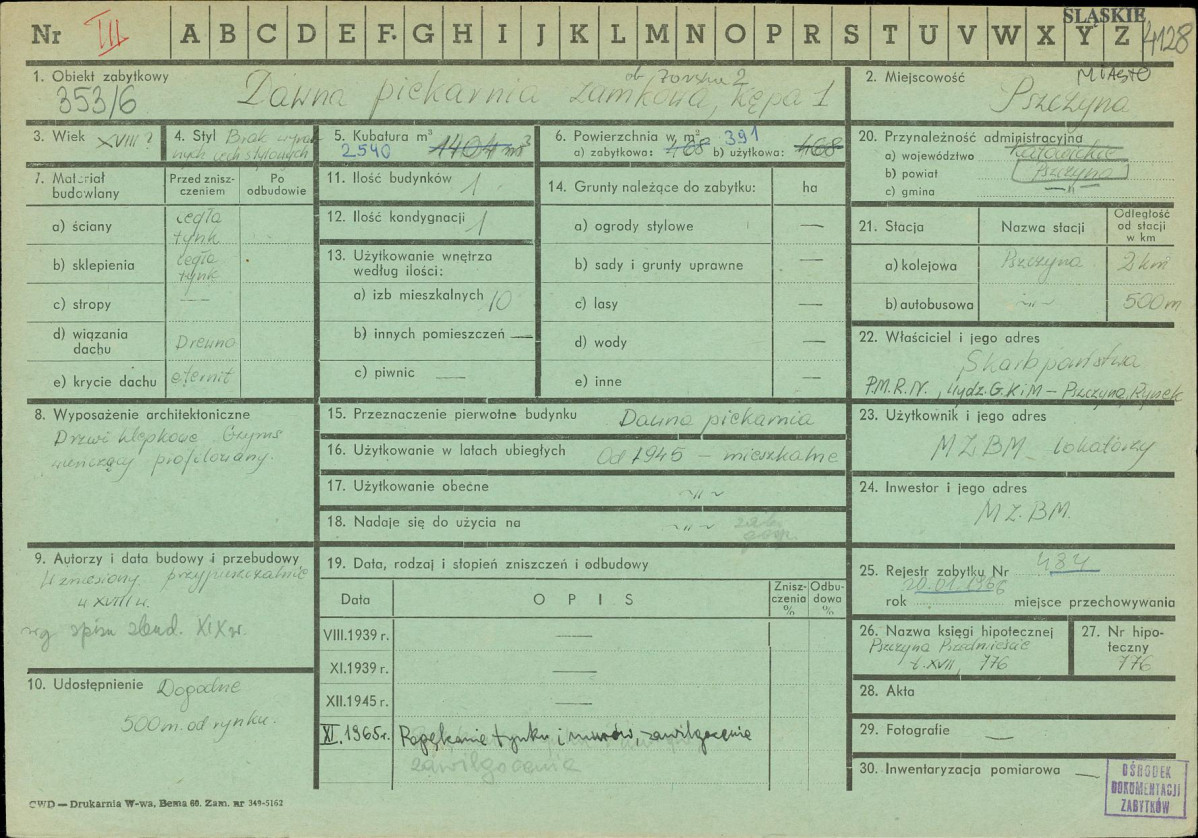 ŚLĄSKIE
Nr III A B C D E F G H I J K L M N O P R S T U V W X Y Z 4128
1. Obiekt zabytkowy
353/6 Dawna piekarnia Zamkowa, Kępa 1
ob. Żorska 2
2. Miejscowość MIASTO
Pszczyna
3. Wiek XVIII?
4. Styl Brak wyraź
nych cech stylowych
5. Kubatura m³
2540 1404 m³
6. Powierzchnia w m² 391
a) zabytkowa: 468 b) użytkowa: 468
20. Przynależność administracyjna
a) województwo katowickie
b) powiat Pszczyna
c) gmina —"—
7. Materiał budowlany
Przed zniszczeniem
Po odbudowie
a) ściany cegła
tynk
b) sklepienia cegła
tynk
c) stropy —
d) wiązania dachu Drewno
e) krycie dachu eternit
11. Ilość budynków 1
12. Ilość kondygnacji 1
13. Użytkowanie wnętrza
według ilości:
a) izb mieszkalnych 10
b) innych pomieszczeń —
c) piwnic —
14. Grunty należące do zabytku: ha
a) ogrody stylowe —
b) sady i grunty uprawne —
c) lasy —
d) wody —
e) inne —
21. Stacja Nazwa stacji Odległość
od stacji
w km
a) kolejowa Pszczyna 2 km
b) autobusowa —"— 500 m
22. Właściciel i jego adres
Skarb państwa
P.M.R.N., Wydz. G.K i M – Pszczyna, Rynek
8. Wyposażenie architektoniczne
Drzwi klepkowe. Gzyms
wieńczący profilowany.
15. Przeznaczenie pierwotne budynku Dawna piekarnia
16. Użytkowanie w latach ubiegłych Od 1945 – mieszkalne
17. Użytkowanie obecne —"—
18. Nadaje się do użycia na —"—
23. Użytkownik i jego adres
MZBM – lokatorzy
24. Inwestor i jego adres
MZ.BM.
9. Autorzy i data budowy i przebudowy
Wzniesiony przypuszczalnie
w XVIII w.
wg spisu zbud. XIX w.
19. Data, rodzaj i stopień zniszczeń i odbudowy
Data O P I S Zniszczenia % Odbudowa %
VIII.1939 r. —
XI.1939 r. —
XII.1945 r. —
XI.1965 r. Popękanie tynku i murów, zawilgocenie
zawilgocenia
25. Rejestr zabytku Nr 484
20.01.1966
rok miejsce przechowywania
26. Nazwa księgi hipotecznej
Pszczyna Przedmieście
t. XVII, 776
27. Nr hipoteczny
776
10. Udostępnienie Dogodne
500 m. od rynku.
28. Akta
29. Fotografie —
30. Inwentaryzacja pomiarowa —
OŚRODEK
DOKUMENTACJI
ZABYTKÓW
CWD — Drukarnia W-wa, Bema 60. Zam. nr 349-5162